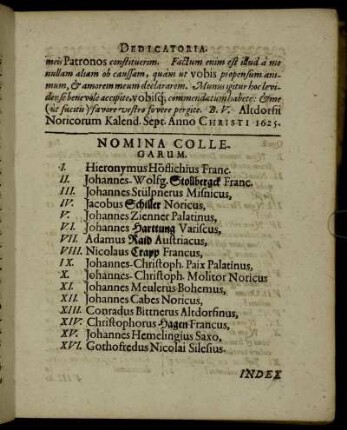 DEDICATORIA.
meis Patronos constituerem. Factum enim est illud à me
nullam aliam ob caussam, quàm ut vobis propensum ani-
mum, & amorem meum declararem. Munus igitur hoc levi-
dense benevolè accipite, vobisq; commendatum habete: & me
(ut facitis) favore vestro fovere pergite. B. V. Altdorfii
Noricorum Kalend. Sept. Anno CHRISTI 1625.
NOMINA COLLE-
GARUM.
I. Hieronymus Höflichius Franc.
II. Johannes-Wolfg. Stollbergck Franc.
III. Johannes Stülpnerus Misnicus,
IV. Jacobus Schiller Noricus,
V. Johannes Zienner Palatinus,
VI. Johannes Harttung Variscus,
VII. Adamus Raid Austriacus,
VIII. Nicolaus Crapp Francus,
IX. Johannes-Christoph. Paix Palatinus,
X. Johannes-Christoph. Molitor Noricus
XI. Johannes Meulerus Bohemus,
XII. Johannes Cabes Noricus,
XIII. Conradus Bittnerus Altdorfinus,
XIV. Christophorus Hagen Francus,
XV. Johannes Hemelingius Saxo,
XVI. Gothofredus Nicolai Silesius.
INDEX